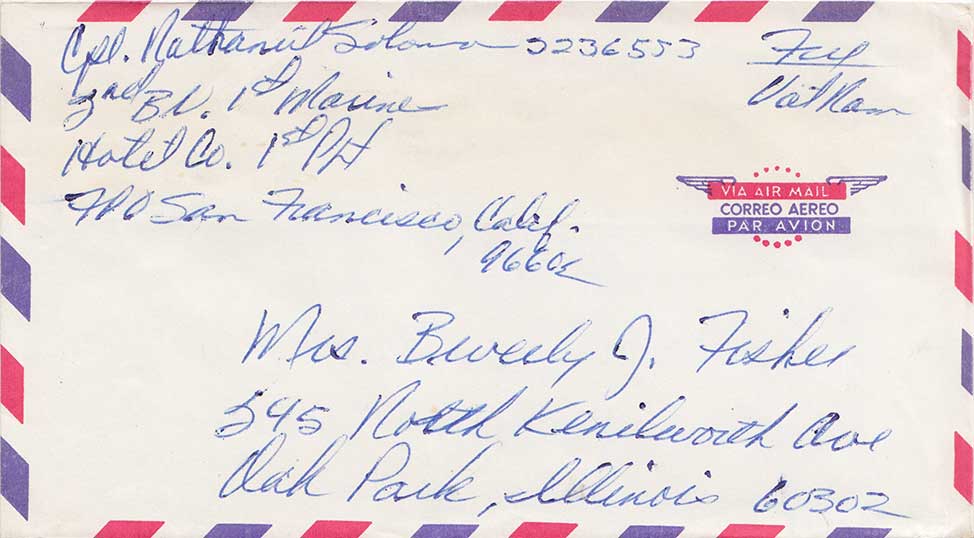 Cpl. Nathaniel Solomon 2236553
Free
VietNam
2nd BN. 1st Marine
Hotel Co. 1st Plt
FPO San Francisco, Calif.
96602
VIA AIR MAIL
CORREO AEREO
PAR AVION
Mrs. Beverly J. Fisher
545 North Kenilworth Ave
Oak Park, Illinois 60302